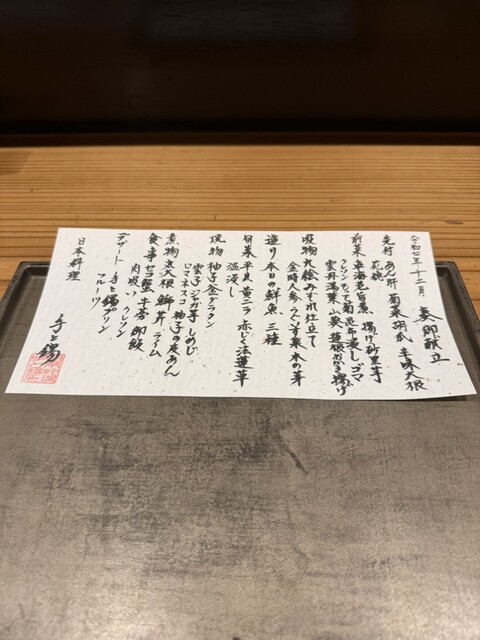 令和七年 十二月 葵 御献立
先付 あん肝 菊菜 胡瓜 辛味大根
花穂
前菜 車海老旨煮 揚げ砂里芋
クレソンもって菊 昆布浸し ゴマ
雲丹湯葉 小票 蓮根おかき揚げ
吸物 大蛤みぞれ仕立て
金時人参 うぐいす菜 木の芽
造り 本日の鮮魚 三種
冒菜 平貝 黄ニラ 赤じく法蓮草
温浸し
焼物 柚子釜グラタン
雲子 ジャガ芋 しめじ
ロマネスコ 柚子の皮あん
煮物 炙大根 鰤 芹 ライム
食事 セコ蟹 牛蒡 御飯
肉吸い クレソン
デザート 手と錫プリン
フルーツ
日本料理 手と錫